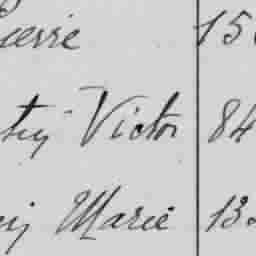 Pierre 15
Victor 84
Marie 13